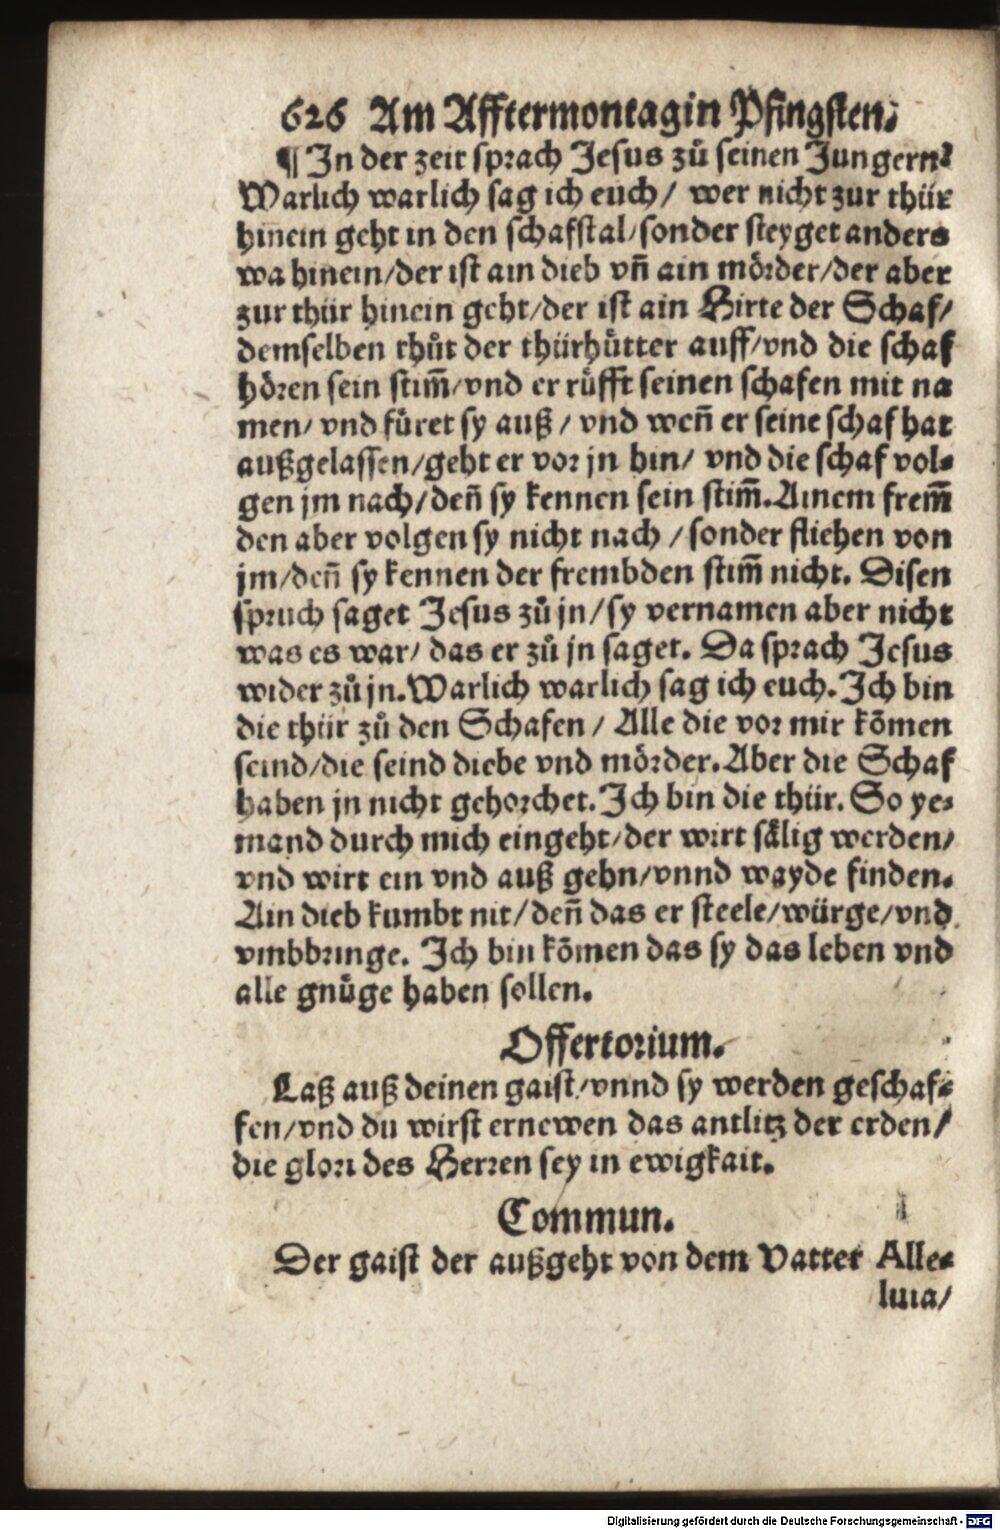 626 Am Afftermontag in Pfingsten.
¶ In der zeit sprach Jesus zů seinen Jungern:
Warlich warlich sag ich euch / wer nicht zur thür
hinein geht in den schafstal / sonder steyget anders
wa hinein / der ist ain dieb vñ ain mörder / der aber
zur thür hinein geht / der ist ain Hirte der Schaf /
demselben thůt der thürhütter auff / vnd die schaf
hören sein stim̃ / vnd er rüfft seinen schafen mit na
men / vnd füret sy auß / vnd weñ er seine schaf hat
außgelassen / geht er vor jn hin / vnd die schaf vol⸗
gen jm nach / deñ sy kennen sein stim̃. Ainem frem̃
den aber volgen sy nicht nach / sonder fliehen von
jm / deñ sy kennen der frembden stim̃ nicht. Disen
spruch saget Jesus zů jn / sy vernamen aber nicht
was es war / das er zů jn saget. Da sprach Jesus
wider zů jn. Warlich warlich sag ich euch. Ich bin
die thür zů den Schafen / Alle die vor mir kõmen
seind / die seind diebe vnd mörder. Aber die Schaf
haben jn nicht gehorchet. Ich bin die thür. So ye⸗
mand durch mich eingeht / der wirt sälig werden /
vnd wirt ein vnd auß gehn / vnnd wayde finden.
Ain dieb kumbt nit / deñ das er steele / würge / vnd
vmbbringe. Ich bin kõmen das sy das leben vnd
alle gnüge haben sollen.
Offertorium.
Laß auß deinen gaist / vnnd sy werden geschaf⸗
fen / vnd du wirst ernewen das antlitz der erden /
die glori des Herren sey in ewigkait.
Commun.
Der gaist der außgeht von dem Vatter Alle⸗
luia /
Digitalisierung gefördert durch die Deutsche Forschungsgemeinschaft - DFG